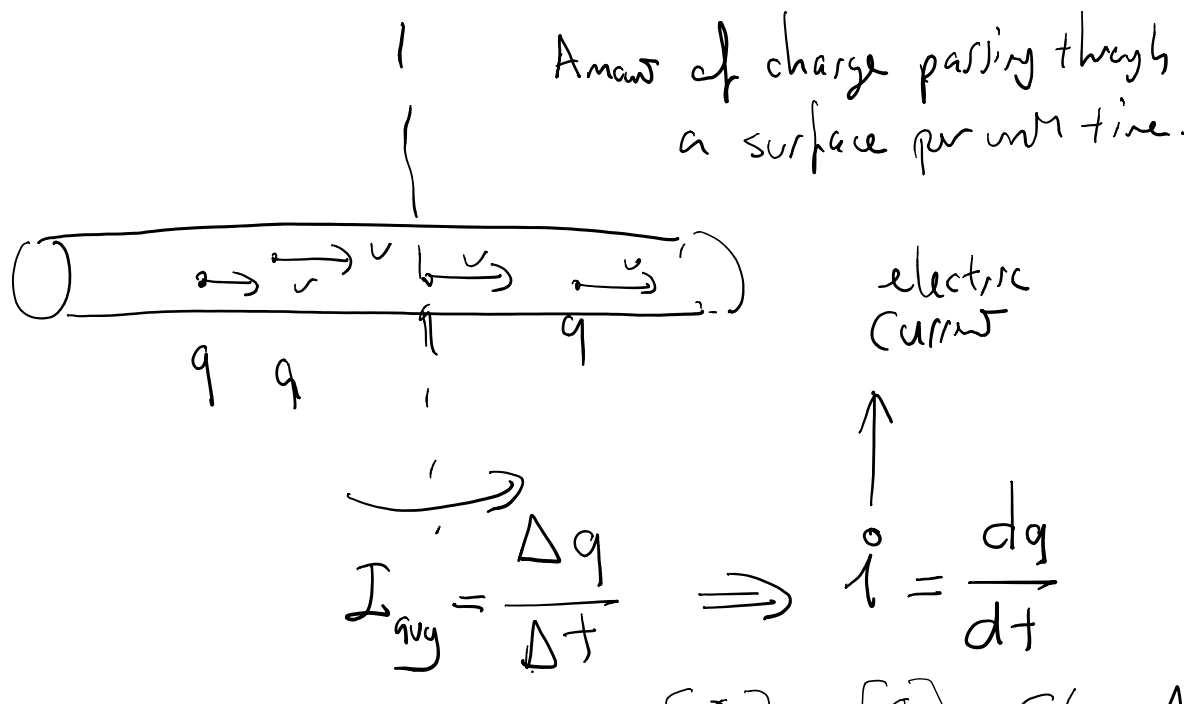 Amount of charge passing through
a surface per unit time.
v v v v
q q
q q
electric
current
I_avg = Δq / Δt ⇒ i = dq / dt